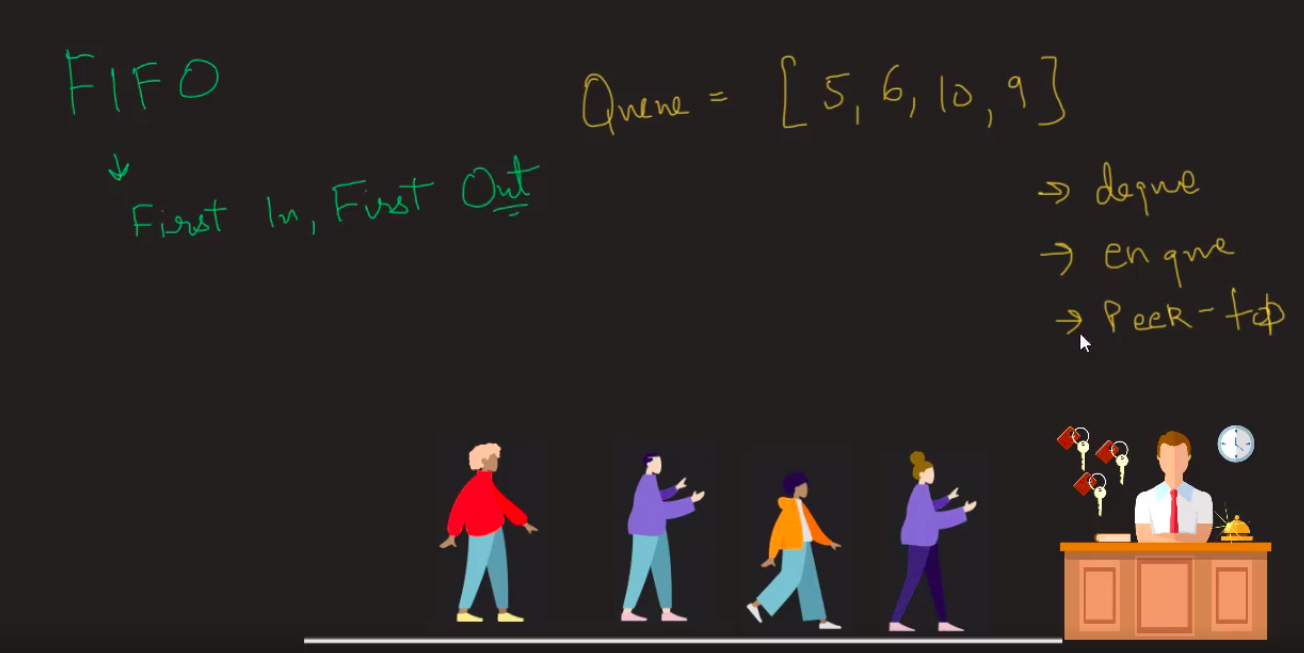 FIFO
↓
First In, First Out
Queue = [5, 6, 10, 9]
→ deque
→ enque
→ Peek-top